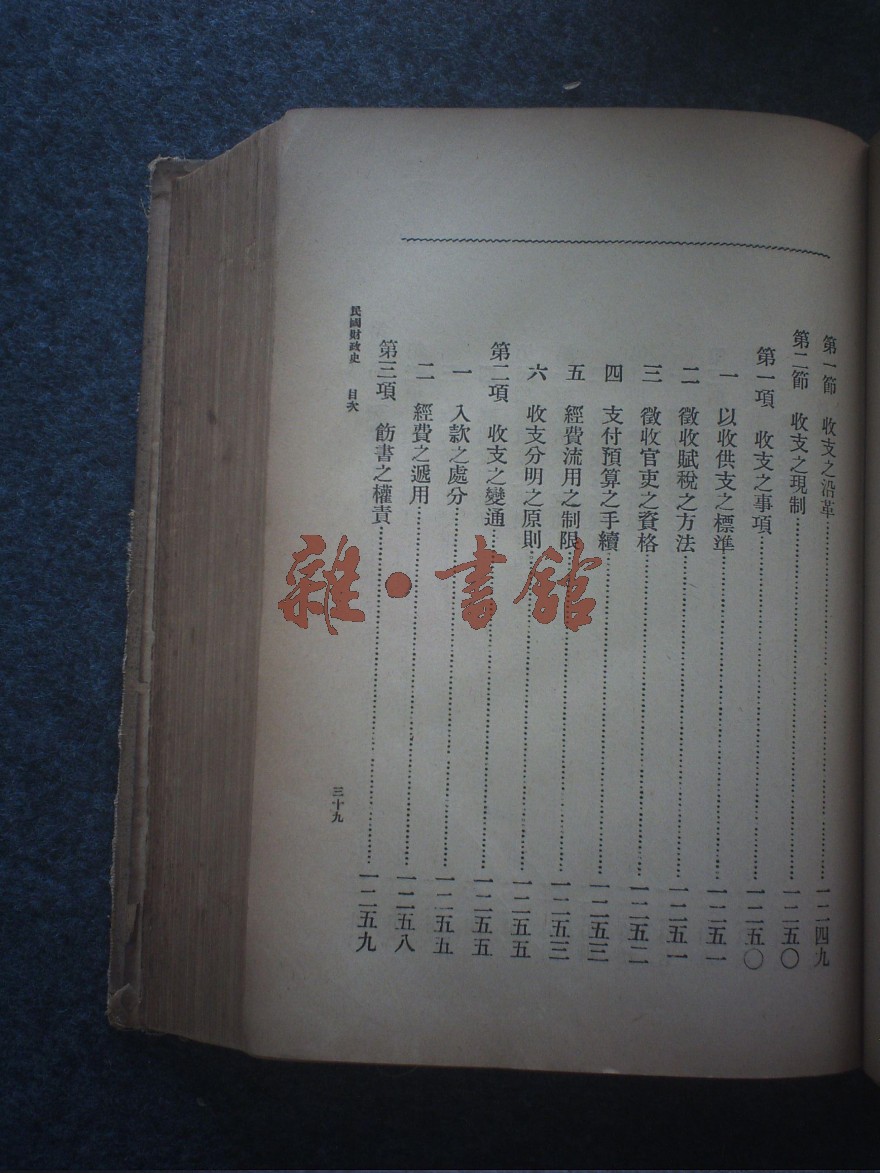 第一節　收支之沿革……一二四九
第二節　收支之現制……一二五〇
第一項　收支之事項……一二五〇
一　以收供支之標準……一二五一
二　徵收賦稅之方法……一二五一
三　徵收官吏之資格……一二五二
四　支付預算之手續……一二五三
五　經費流用之制限……一二五三
六　收支分明之原則……一二五五
第二項　收支之變通……一二五五
一　入款之處分……一二五五
二　經費之遞用……一二五八
第三項　飭書之權責……一二五九
民國財政史　目次
三十九
雜·書館